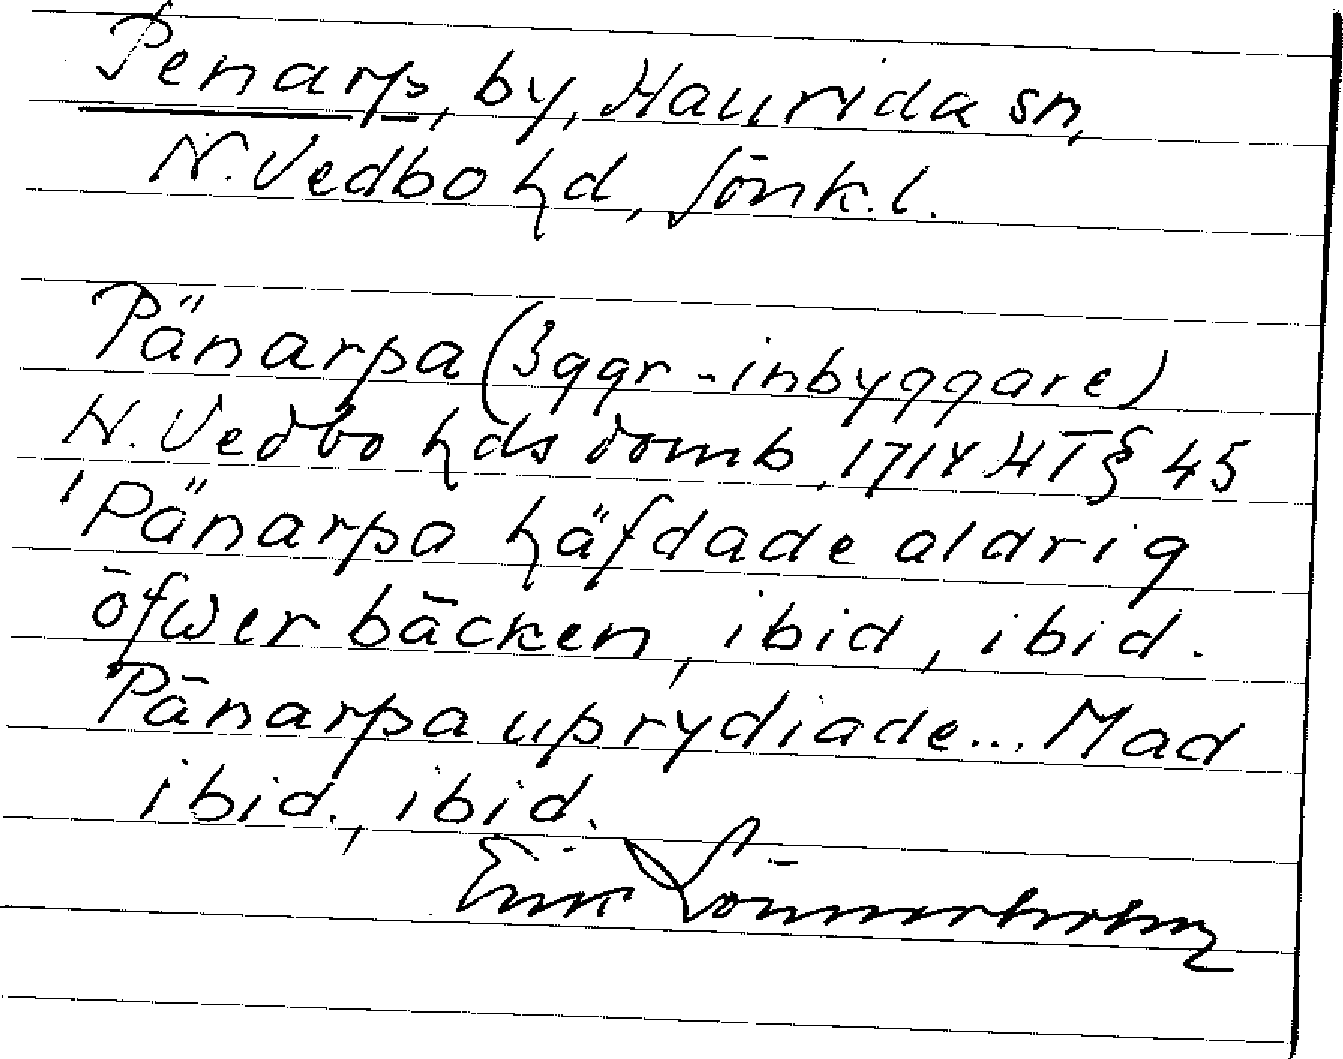 Penarp, by, Haurida sn,
N. Vedbo hd, Jönk. l.
Pänarpa (3 ggr - inbyggare)
N. Vedbo hds domb, 1714 HT § 45
'Pänarpa häfdade aldrig
öfwer bäcken, ibid, ibid.
Pänarpa uprydiade... Mad
ibid., ibid.
Erik